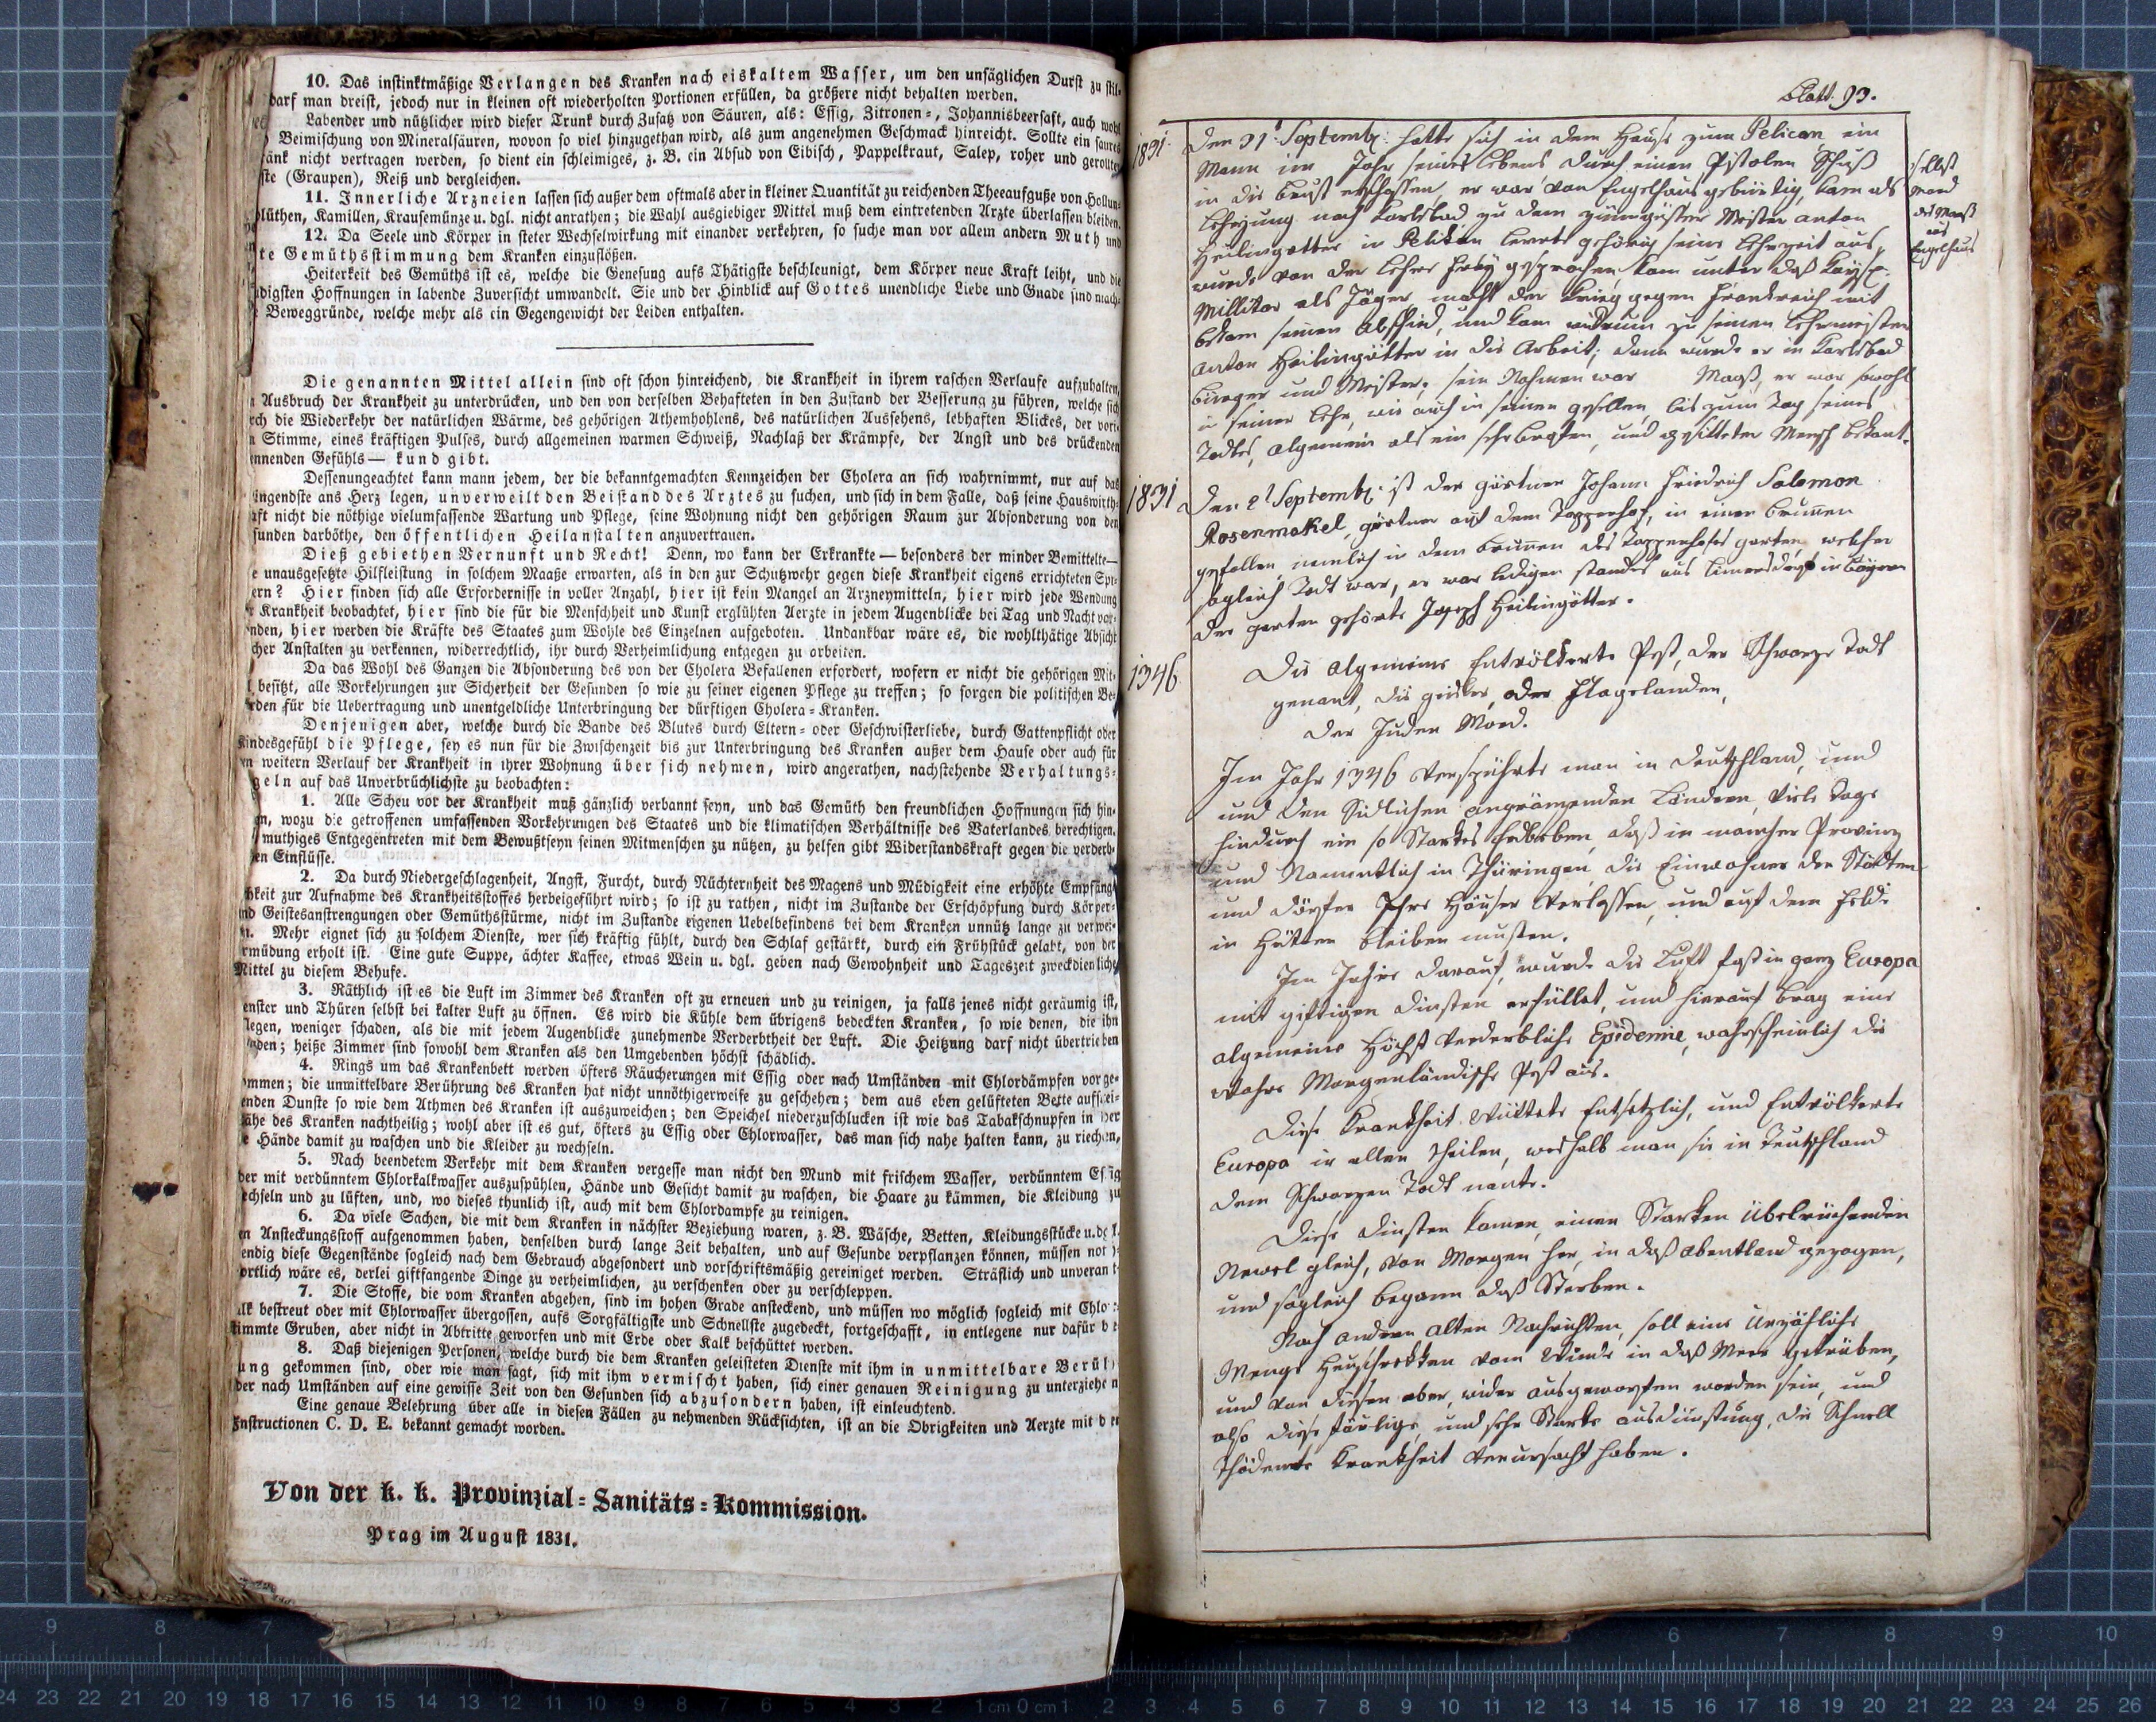 10. Das instinktmäßige Verlangen des Kranken nach eiskaltem Wasser, um den unsäglichen Durst zu stil-
darf man dreist, jedoch nur in kleinen oft wiederholten Portionen erfüllen, da größere nicht behalten werden.
Labender und nützlicher wird dieser Trunk durch Zusatz von Säuren, als: Essig, Zitronen-, Johannisbeersaft, auch wohl
Beimischung von Mineralsäuren, wovon so viel hinzugethan wird, als zum angenehmen Geschmack hinreicht. Sollte ein saures
ränk nicht vertragen werden, so dient ein schleimiges, z. B. ein Absud von Eibisch, Pappelkraut, Salep, roher und gerollter
ste (Graupen), Reiß und dergleichen.
11. Innerliche Arzneien lassen sich außer dem oftmals aber in kleiner Quantität zu reichenden Theeaufguße von Hollun-
blüthen, Kamillen, Krausemünze u. dgl. nicht anrathen; die Wahl ausgiebiger Mittel muß dem eintretenden Arzte überlassen bleiben.
12. Da Seele und Körper in steter Wechselwirkung mit einander verkehren, so suche man vor allem andern Muth und
te Gemüthsstimmung dem Kranken einzuflößen.
Heiterkeit des Gemüths ist es, welche die Genesung aufs Thätigste beschleunigt, dem Körper neue Kraft leiht, und die
digsten Hoffnungen in labende Zuversicht umwandelt. Sie und der Hinblick auf Gottes unendliche Liebe und Gnade sind mäch-
Beweggründe, welche mehr als ein Gegengewicht der Leiden enthalten.
Die genannten Mittel allein sind oft schon hinreichend, die Krankheit in ihrem raschen Verlaufe aufzuhalten,
Ausbruch der Krankheit zu unterdrücken, und den von derselben Behafteten in den Zustand der Besserung zu führen, welche sich
rch die Wiederkehr der natürlichen Wärme, des gehörigen Athemhohlens, des natürlichen Aussehens, lebhaften Blickes, der vori-
n Stimme, eines kräftigen Pulses, durch allgemeinen warmen Schweiß, Nachlaß der Krämpfe, der Angst und des drückenden
nnenden Gefühls — kund gibt.
Dessenungeachtet kann mann jedem, der die bekanntgemachten Kennzeichen der Cholera an sich wahrnimmt, nur auf das
ingendste ans Herz legen, unverweilt den Beistand des Arztes zu suchen, und sich in dem Falle, daß seine Hauswirth-
aft nicht die nöthige vielumfassende Wartung und Pflege, seine Wohnung nicht den gehörigen Raum zur Absonderung von den
sunden darböthe, den öffentlichen Heilanstalten anzuvertrauen.
Dieß gebiethen Vernunft und Recht! Denn, wo kann der Erkrankte — besonders der minder Bemittelte —
e unausgesetzte Hilfleistung in solchem Maaße erwarten, als in den zur Schutzwehr gegen diese Krankheit eigens errichteten Spi-
ern? Hier finden sich alle Erfordernisse in voller Anzahl, hier ist kein Mangel an Arzneymitteln, hier wird jede Wendung
r Krankheit beobachtet, hier sind die für die Menschheit und Kunst erglühten Aerzte in jedem Augenblicke bei Tag und Nacht vor-
nden, hier werden die Kräfte des Staates zum Wohle des Einzelnen aufgeboten. Undankbar wäre es, die wohlthätige Absicht
cher Anstalten zu verkennen, widerrechtlich, ihr durch Verheimlichung entgegen zu arbeiten.
Da das Wohl des Ganzen die Absonderung des von der Cholera Befallenen erfordert, wofern er nicht die gehörigen Mit-
l besitzt, alle Vorkehrungen zur Sicherheit der Gesunden so wie zu seiner eigenen Pflege zu treffen; so sorgen die politischen Be-
rden für die Uebertragung und unentgeldliche Unterbringung der dürftigen Cholera-Kranken.
Denjenigen aber, welche durch die Bande des Blutes durch Eltern- oder Geschwisterliebe, durch Gattenpflicht oder
Kindesgefühl die Pflege, sey es nun für die Zwischenzeit bis zur Unterbringung des Kranken außer dem Hause oder auch für
en weitern Verlauf der Krankheit in ihrer Wohnung über sich nehmen, wird angerathen, nachstehende Verhaltungs-
geln auf das Unverbrüchlichste zu beobachten:
1. Alle Scheu vor der Krankheit muß gänzlich verbannt seyn, und das Gemüth den freundlichen Hoffnungen sich hin-
en, wozu die getroffenen umfassenden Vorkehrungen des Staates und die klimatischen Verhältnisse des Vaterlandes berechtigen.
muthiges Entgegentreten mit dem Bewußtseyn seinen Mitmenschen zu nützen, zu helfen gibt Widerstandskraft gegen die verderb-
hen Einflüsse.
2. Da durch Niedergeschlagenheit, Angst, Furcht, durch Nüchternheit des Magens und Müdigkeit eine erhöhte Empfäng
hkeit zur Aufnahme des Krankheitsstoffes herbeigeführt wird; so ist zu rathen, nicht im Zustande der Erschöpfung durch Körper-
nd Geistesanstrengungen oder Gemüthsstürme, nicht im Zustande eigenen Uebelbefindens bei dem Kranken unnütz lange zu verwei-
n. Mehr eignet sich zu solchem Dienste, wer sich kräftig fühlt, durch den Schlaf gestärkt, durch ein Frühstück gelabt, von der
rmüdung erholt ist. Eine gute Suppe, ächter Kaffee, etwas Wein u. dgl. geben nach Gewohnheit und Tageszeit zweckdienliche
Mittel zu diesem Behufe.
3. Räthlich ist es die Luft im Zimmer des Kranken oft zu erneuen und zu reinigen, ja falls jenes nicht geräumig ist,
enster und Thüren selbst bei kalter Luft zu öffnen. Es wird die Kühle dem übrigens bedeckten Kranken, so wie denen, die ihn
legen, weniger schaden, als die mit jedem Augenblicke zunehmende Verderbtheit der Luft. Die Heitzung darf nicht übertrieben
nden; heiße Zimmer sind sowohl dem Kranken als den Umgebenden höchst schädlich.
4. Rings um das Krankenbett werden öfters Räucherungen mit Essig oder nach Umständen mit Chlordämpfen vorge-
ommen; die unmittelbare Berührung des Kranken hat nicht unnöthigerweise zu geschehen; dem aus eben gelüfteten Bette aufstei-
enden Dunste so wie dem Athmen des Kranken ist auszuweichen; den Speichel niederzuschlucken ist wie das Tabakschnupfen in der
ähe des Kranken nachtheilig; wohl aber ist es gut, öfters zu Essig oder Chlorwasser, das man sich nahe halten kann, zu riechen,
e Hände damit zu waschen und die Kleider zu wechseln.
5. Nach beendetem Verkehr mit dem Kranken vergesse man nicht den Mund mit frischem Wasser, verdünntem Essig
der mit verdünntem Chlorkalkwasser auszuspühlen, Hände und Gesicht damit zu waschen, die Haare zu kämmen, die Kleidung zu
echseln und zu lüften, und, wo dieses thunlich ist, auch mit dem Chlordampfe zu reinigen.
6. Da viele Sachen, die mit dem Kranken in nächster Beziehung waren, z. B. Wäsche, Betten, Kleidungsstücke u. dgl.
en Ansteckungsstoff aufgenommen haben, denselben durch lange Zeit behalten, und auf Gesunde verpflanzen können, müssen not
endig diese Gegenstände sogleich nach dem Gebrauch abgesondert und vorschriftsmäßig gereiniget werden. Sträflich und unverant
ortlich wäre es, derlei giftfangende Dinge zu verheimlichen, zu verschenken oder zu verschleppen.
7. Die Stoffe, die vom Kranken abgehen, sind im hohen Grade ansteckend, und müssen wo möglich sogleich mit Chlor-
alk bestreut oder mit Chlorwasser übergossen, aufs Sorgfältigste und Schnellste zugedeckt, fortgeschafft, in entlegene nur dafür be
timmte Gruben, aber nicht in Abtritte geworfen und mit Erde oder Kalk beschüttet werden.
8. Daß diejenigen Personen, welche durch die dem Kranken geleisteten Dienste mit ihm in unmittelbare Berüh
ung gekommen sind, oder wie man sagt, sich mit ihm vermischt haben, sich einer genauen Reinigung zu unterziehen
der nach Umständen auf eine gewisse Zeit von den Gesunden sich abzusondern haben, ist einleuchtend.
Eine genaue Belehrung über alle in diesen Fällen zu nehmenden Rücksichten, ist an die Obrigkeiten und Aerzte mit den
Instructionen C. D. E. bekannt gemacht worden.
Von der k. k. Provinzial-Sanitäts-Kommission.
Prag im August 1831.
Blatt. 93.
1831. Den 31t Septemb: hatte sich in dem Hause zum Pelican, ein
Mann im Jahr seines Lebens durch einen Pistolen Schuß
in die Brust erschossen, er war von Engelhaus gebürtig, kam als
Lehrjung nach Karlsbad zu dem zinngiesser Meister Anton
Heilingötter in Pelikan lernte gehörig seine Lehrzeit aus,
wurde von der Lehre frey gesprochen kam unter daß Kays:
Millitar als Jäger, macht der Krieg gegen Frankreich mit
bekam seinen Abschied, und kam widrum zu seinen Lehrmeister
Anton Heilingötter in die Arbeit; dann wurde er in Karlsbad
burger und Meister, sein Nahmen war Maaß, er war sowohl
in seiner Lehr, wie auch in seinen gesellen, bis zum Tag seines
Todtes, algemein als ein sehr braser, und gesitteter Mensch bekant.
selbst
Mord
des Maaß
aus
Engelhaus
1831 Den 2t Septemb: ist der gärtner Johann Friedrich Salomon
Rosenmakel, gärtner auf dem Topperhof, in einen brunnen
gefallen nemlich in dem brunnen des Topperhofes garten, welcher
sogleich Todt war, er war ledigen standes aus in Bayern
der garten gehörte Joseph Heilingötter.
1346 Die algemeine Entvölkerte Pest, der Schwarze Todt
genant, die geisler, oder Flagelanden,
der Juden Mord.
Im Jahr 1346 Verspührte man in Deutschland, und
und den Südlichen angränzenden Ländern, viele Tage
hindurch ein so Starkes Erdbeben, daß in mancher Provinz
und Namentlich in Thüringen, die Einwohner der Städten
und dörfer Ihre Häuser Verlassen, und auf dem Felde
in Hütten bleiben musten.
Im Jahre darauf, wurde die Luft fast in ganz Europa
mit giftigen dinsten erfüllet, und hierauf brag eine
algemeine Höchst Verderbliche Epidemie, wahrscheinlich die
Wahre Morgenländische Pest aus.
Diese Krankheit Wüttete Entsetzlich, und Entvölkerte
Europa in allen Theilen, weshalb man sie in Teutschland
dem Schwarzen Todt nante.
Diese dinsten kamen, einen Starken übelrüchenden
Newel gleich, von Morgen her, in daß abentland gezogen,
und sogleich begann daß Sterben.
Nach andern alten Nachrichten, soll eine Unzählige
Menge Heuschrekken vom Winde in daß Meer getrüben,
und von diesen aber, wider ausgeworfen worden sein, und
also diese faulige, und sehr Starke ausdünstung, die Schnell
Thödente Krankheit Verursacht haben.